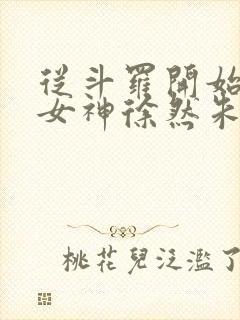 從斗羅開始
女神徐然朱
桃花兒泛濫了